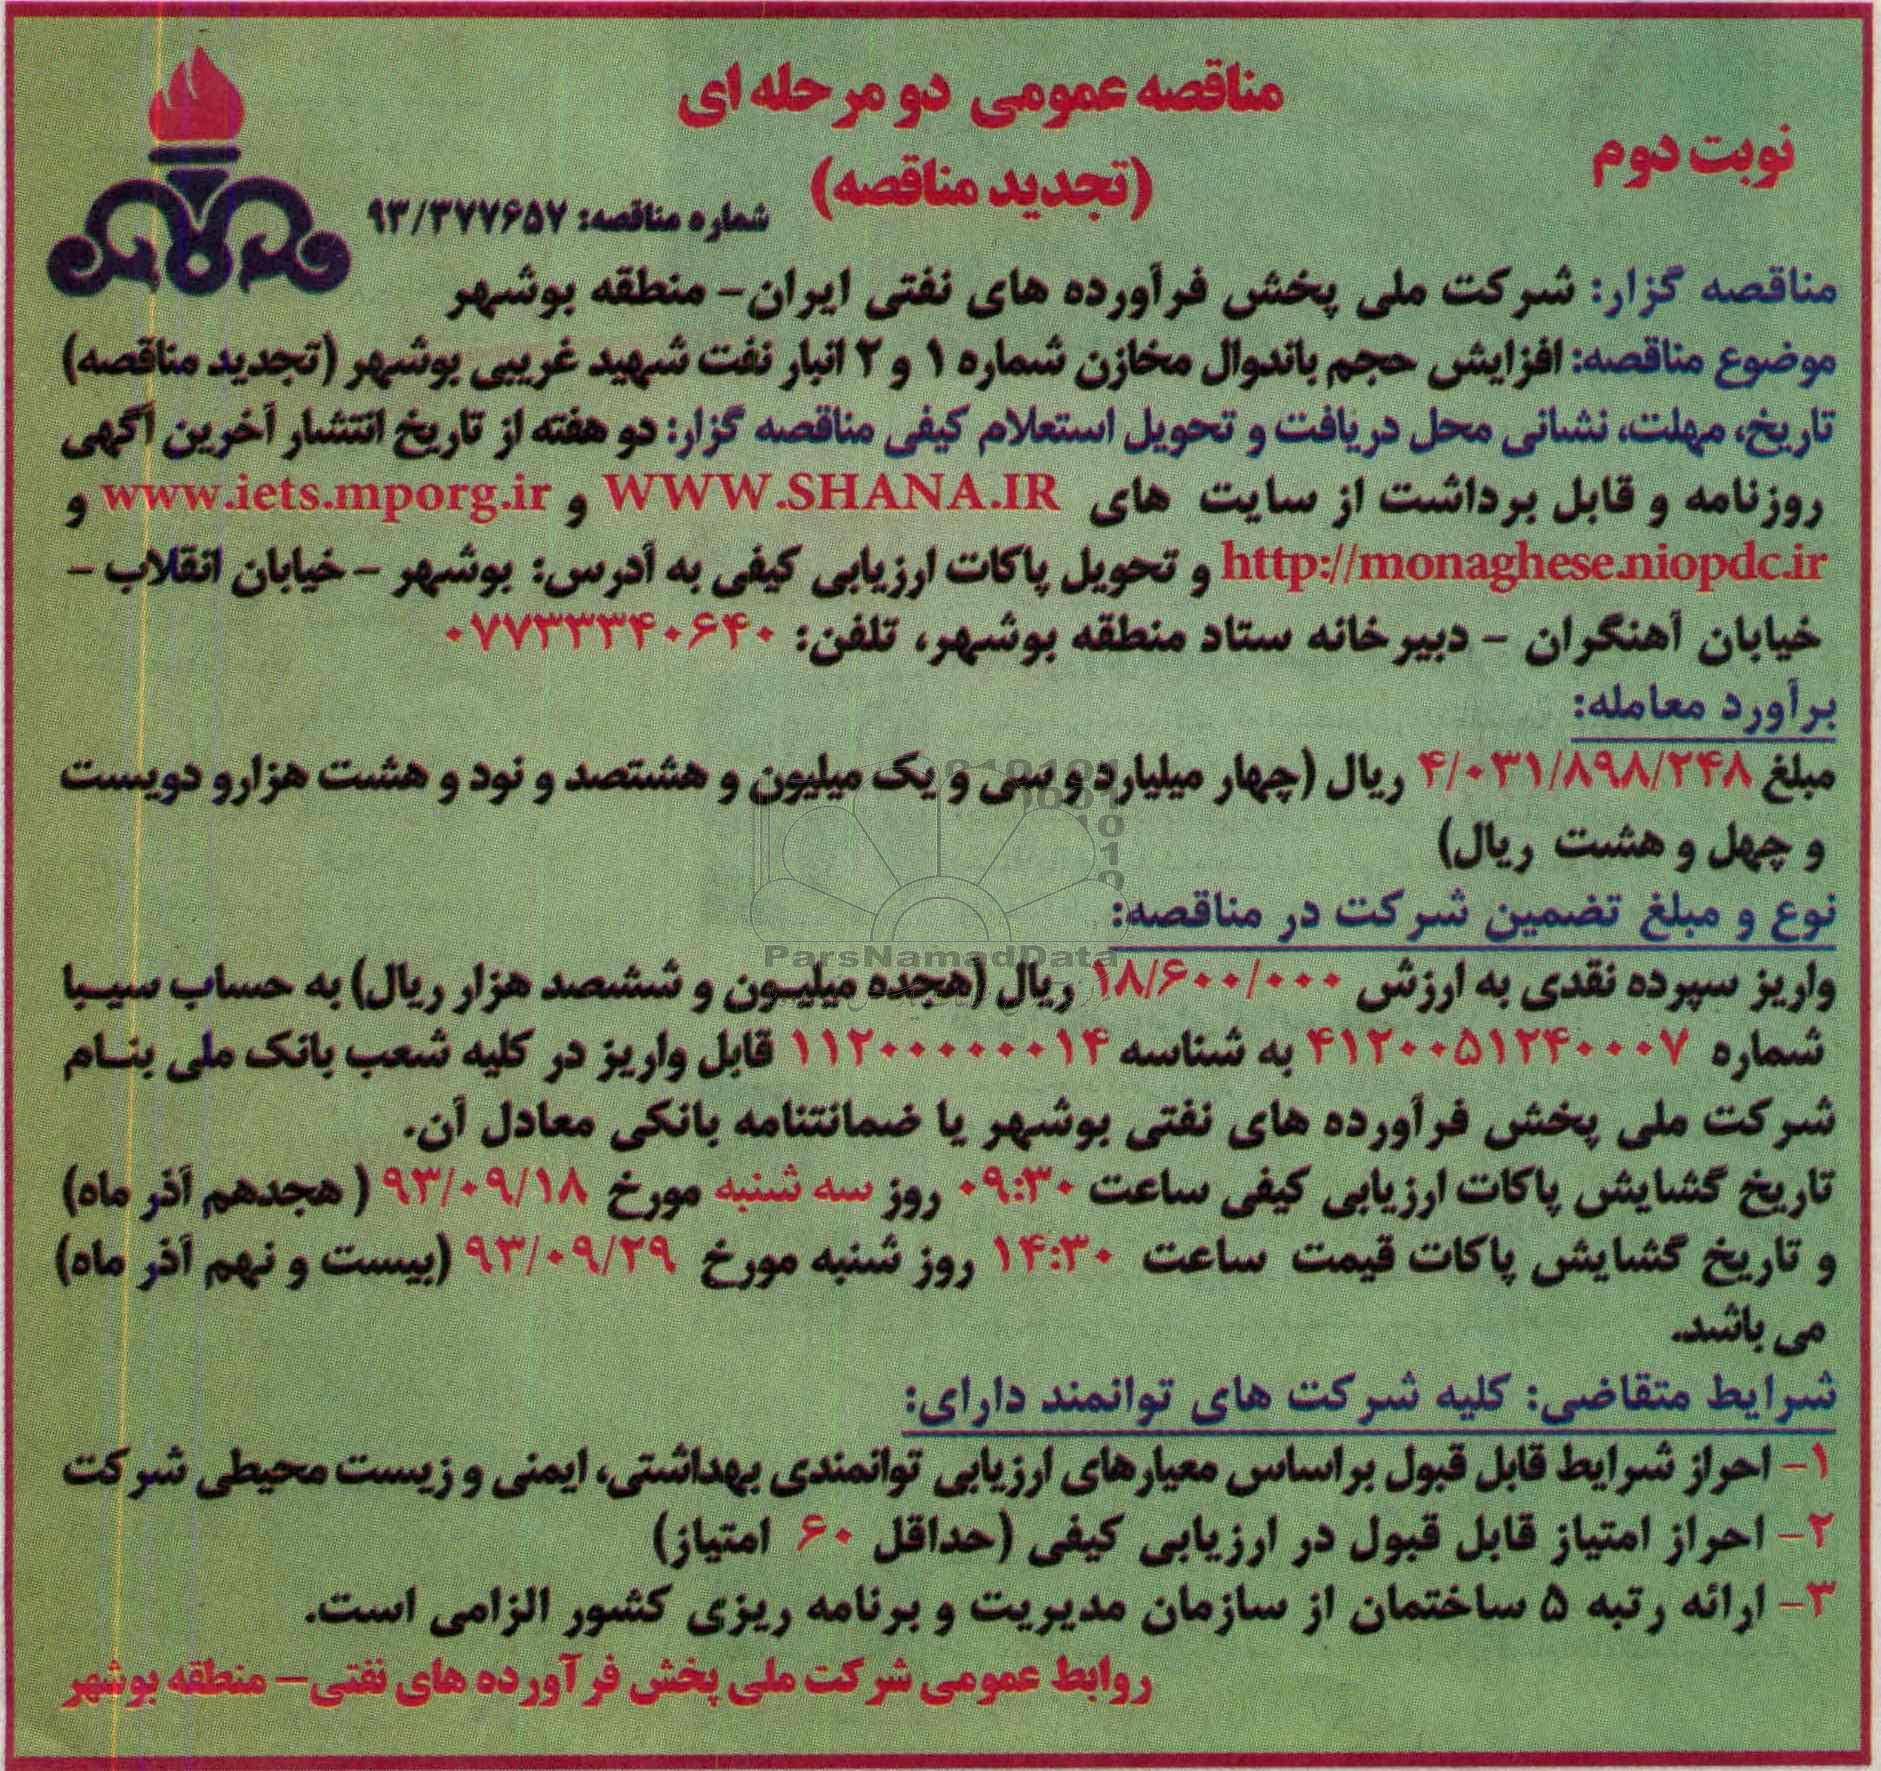 مناقصه عمومی دو مرحله ای
نوبت دوم
(تجدید مناقصه)
شماره مناقصه: ۹۳/۳۷۷۶۵۷
مناقصه گزار: شرکت ملی پخش فرآورده های نفتی ایران- منطقه بوشهر
موضوع مناقصه: افزایش حجم باندوال مخازن شماره ۱ و ۲ انبار نفت شهید غریبی بوشهر (تجدید مناقصه)
تاریخ، مهلت، نشانی محل دریافت و تحویل استعلام کیفی مناقصه گزار: دو هفته از تاریخ انتشار آخرین آگهی
روزنامه و قابل برداشت از سایت های WWW.SHANA.IR و www.iets.mporg.ir و
http://monaghese.niopdc.ir و تحویل پاکات ارزیابی کیفی به آدرس: بوشهر - خیابان انقلاب -
خیابان آهنگران - دبیرخانه ستاد منطقه بوشهر، تلفن: ۰۷۷۳۳۳۴۰۶۴۰
برآورد معامله:
مبلغ ۴/۰۳۱/۸۹۸/۲۴۸ ریال (چهار میلیارد و سی و یک میلیون و هشتصد و نود و هشت هزارو دویست
و چهل و هشت ریال)
نوع و مبلغ تضمین شرکت در مناقصه:
ParsNamadData
واریز سپرده نقدی به ارزش ۱۸/۶۰۰/۰۰۰ ریال (هجده میلیون و ششصد هزار ریال) به حساب سیبا
شماره ۴۱۲۰۰۵۱۲۴۰۰۰۷ به شناسه ۱۱۲۰۰۰۰۰۰۰۱۴ قابل واریز در کلیه شعب بانک ملی بنام
شرکت ملی پخش فرآورده های نفتی بوشهر یا ضمانتنامه بانکی معادل آن.
تاریخ گشایش پاکات ارزیابی کیفی ساعت ۰۹:۳۰ روز سه شنبه مورخ ۹۳/۰۹/۱۸ ( هجدهم آذر ماه)
و تاریخ گشایش پاکات قیمت ساعت ۱۴:۳۰ روز شنبه مورخ ۹۳/۰۹/۲۹ (بیست و نهم آذر ماه)
می باشد.
شرایط متقاضی: کلیه شرکت های توانمند دارای:
۱- احراز شرایط قابل قبول براساس معیارهای ارزیابی توانمندی بهداشتی، ایمنی و زیست محیطی شرکت
۲- احراز امتیاز قابل قبول در ارزیابی کیفی (حداقل ۶۰ امتیاز)
۳- ارائه رتبه ۵ ساختمان از سازمان مدیریت و برنامه ریزی کشور الزامی است.
روابط عمومی شرکت ملی پخش فرآورده های نفتی- منطقه بوشهر